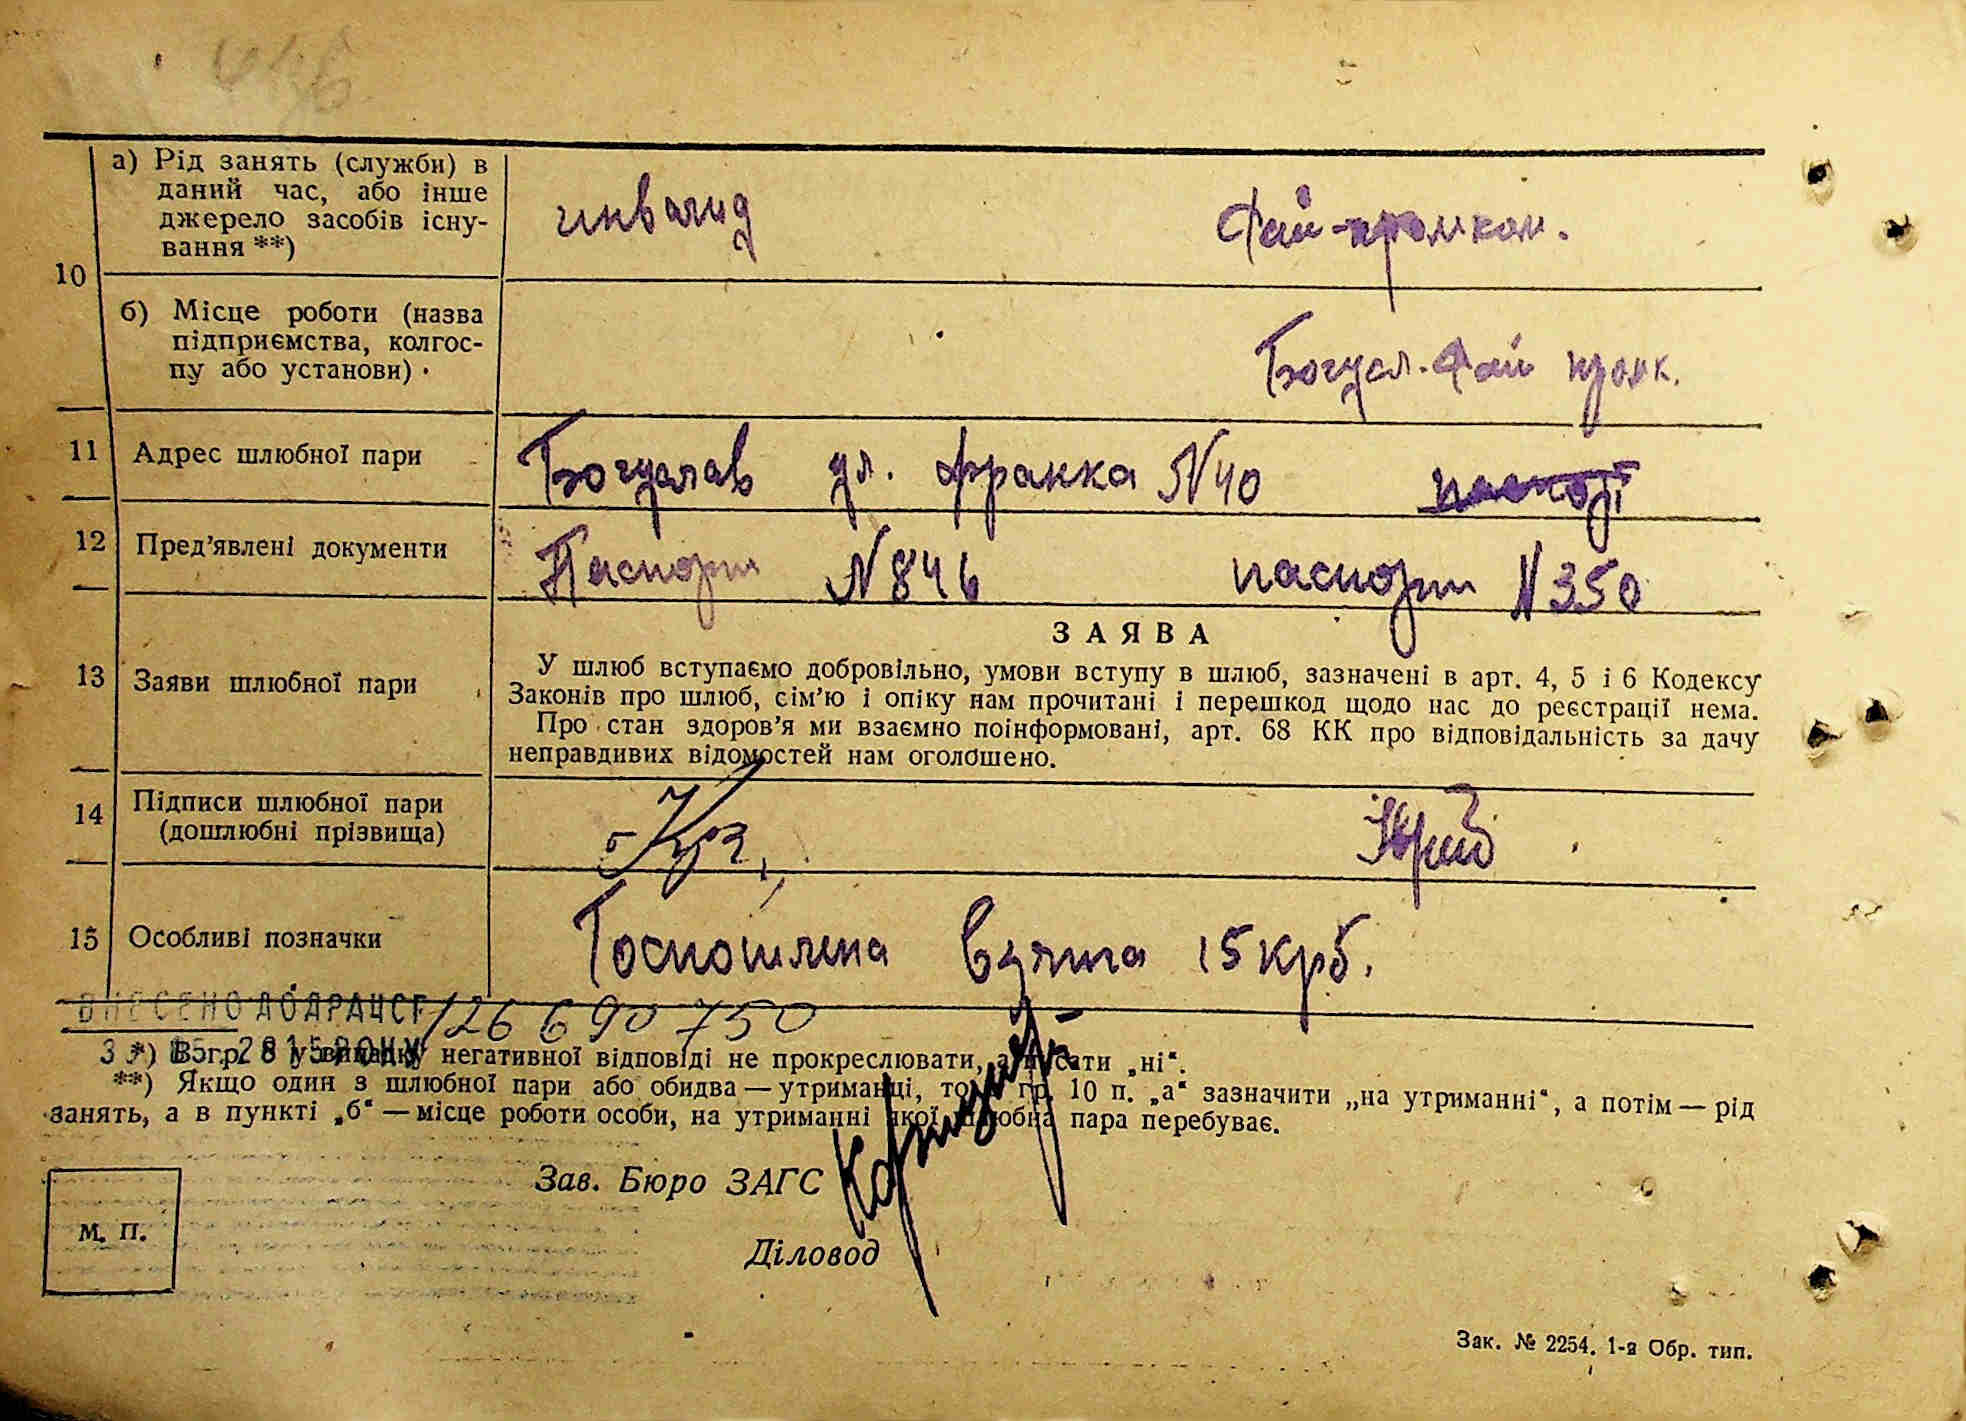 10
а) Рід занять (служби) в
даний час, або інше
джерело засобів існу-
вання **)
инвалид
Рай-промком.
б) Місце роботи (назва
підприємства, колгос-
пу або установи)
Богусл. Рай пром к.
11 Адрес шлюбної пари
Богуслав ул. Франка N40
12 Пред’явлені документи
Паспорт N 846 паспорт N 350
ЗАЯВА
13 Заяви шлюбної пари
У шлюб вступаємо добровільно, умови вступу в шлюб, зазначені в арт. 4, 5 і 6 Кодексу
Законів про шлюб, сім’ю і опіку нам прочитані і перешкод щодо нас до реєстрації нема.
Про стан здоров’я ми взаємно поінформовані, арт. 68 КК про відповідальність за дачу
неправдивих відомостей нам оголошено.
14 Підписи шлюбної пари
(дошлюбні прізвища)
15 Особливі позначки
Госпошлина взята 15 крб.
ВНЕСЕНО ДО ДРАЦСГ 126 690 750
*) В гр. 8 у випадку негативної відповіді не прокреслювати, а писати „ні“.
**) Якщо один з шлюбної пари або обидва — утриманці, то в гр. 10 п. „а“ зазначити „на утриманні“, а потім — рід
занять, а в пункті „б“ — місце роботи особи, на утриманні якої шлюбна пара перебуває.
Зав. Бюро ЗАГС
М. П.
Діловод
Зак. № 2254. 1-а Обр. тип.